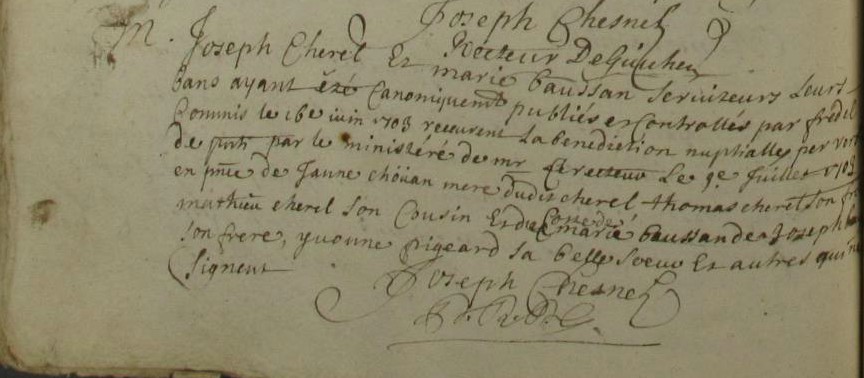 Joseph Chesnel
Recteur De Guichen
M. Joseph Cherel Et marie baussan Serviteurs Leurs
bans ayant Canoniquement publiés et Controllés par fredel
Commis le 16e iuin 1703 receurent La benediction nuptialle per
de par le ministéré de mr Le recteur Le 9e Juillet 1703
en pnce de Janne choüan mere dudit cherel thomas cherel Son
mathieu cherel Son Cousin Et du Costé de marie baussan de Joseph
Son frere, yvonne pigeard Sa belle Soeur Et autres qui ne
Signent
Joseph Chesnel